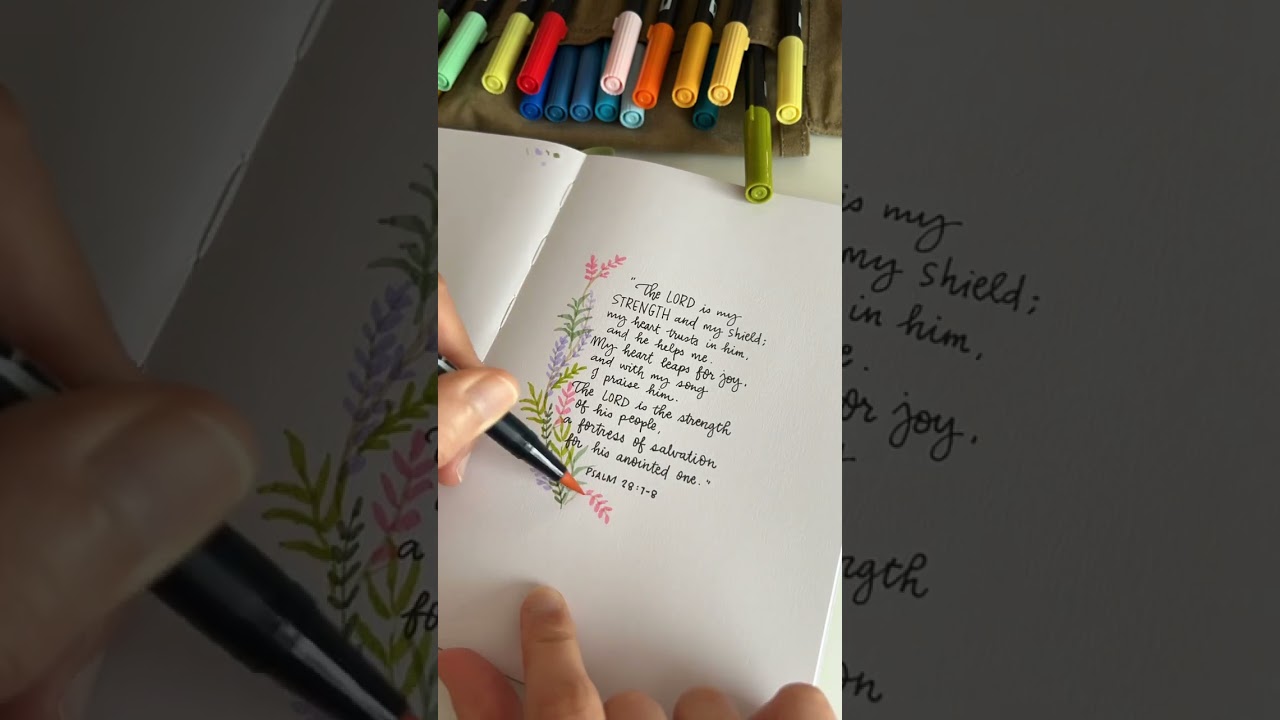 "The LORD is my
STRENGTH and my shield;
my heart trusts in him,
and he helps me.
My heart leaps for joy,
and with my song
I praise him.
The LORD is the strength
of his people,
a fortress of salvation
for his anointed one."
PSALM 28:7-8